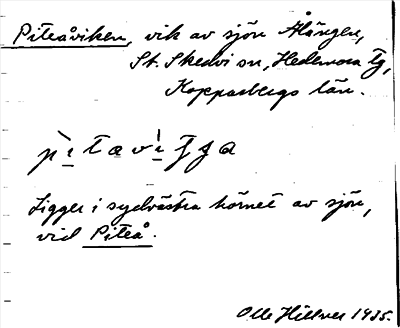 Piteåviken, vik av sjön Ålången,
St. Skedvi sn, Hedemora tg,
Kopparbergs län.
Ligger i sydvästra hörnet av sjön,
vid Piteå.
Olle Hillver 1935.